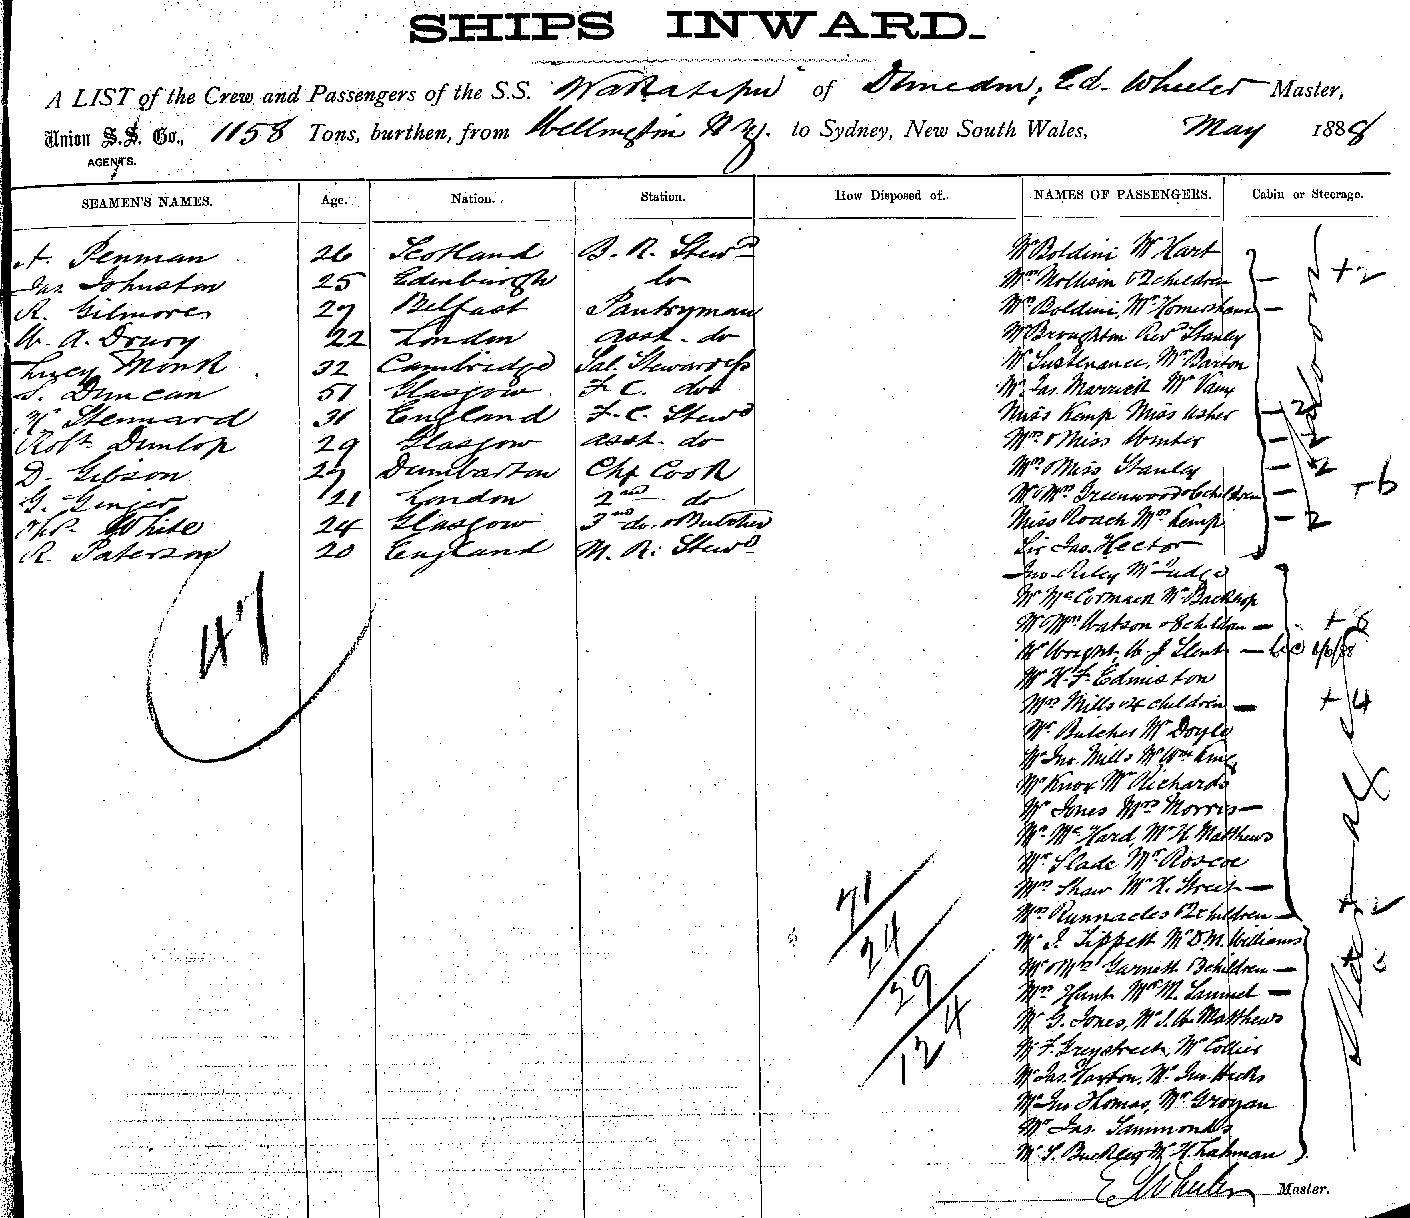 SHIPS INWARD.
A LIST of the Crew and Passengers of the S.S. "Wakatipu" of Dunedin, Ed. Wheeler Master,
Union S.S. Co., 1158 Tons, burthen, from Wellington N Z. to Sydney, New South Wales, May 1888
AGENTS.
SEAMEN'S NAMES. Age. Nation. Station. How Disposed of. NAMES OF PASSENGERS. Cabin or Steerage.
A. Penman 26 Scotland B. R. Stewd Mr Boldini Mr Hart
Jas Johnston 25 Edinburgh do Mrs Mollison & 2 children — +2
R. Gilmore 27 Belfast Pantryman Mrs Boldini, Mr Homersham —
W. A. Drury 22 London asst. do Mr Broughton Revd Stanley
Lucy Monk 32 Cambridge Sal. Stewardess Mr Sustenance, Mr Barton
S. Duncan 51 Glasgow F. C. do Mr Jas. Marriott Mr Vaux
Stennard 31 England F. C. Stewd Miss Kemp Miss Asher — 2
Robt Dunlop 29 Glasgow asst. do Mrs & Miss Winter — 2
D. Gibson 27 Dumbarton Chf Cook Mrs & Miss Stanley — 2
G. Ginger 21 London 2nd do Mr & Mrs Greenwood & 6 children — +6
White 24 Glasgow 3rd do. & Butcher Miss Roach Mrs Kemp — 2
R. Paterson 20 England M. R. Stewd Sir Jas. Hector
Saloon
47
Jno. Riley Mr Judge
Mr McCormack Mr Backhop
Mr & Mrs Watson & 8 children — + 8
Mr Wright, W. J. Slent —
Mr H. F. Edmiston
Mrs Mills & 4 children — + 4
Mr Butcher Mr Doyle
Mr Jno. Mills Mr Wm King
Mr Knox Mr Richards
Mr Jones Mrs Morris —
Mr McHard, Mr H. Matthews
Mr Slade Mr Roscoe
Mrs Shaw Mr H. Street —
Mrs Runnacles & 2 children — + 2
Mr J. Tippett Mr D. M. Williams
Mr & Mrs Garnett & 3 children — + 3
Mrs Hunt Mr M. Samuel —
Mr G. Jones, Mr J. W. Matthews
Mr F. Greystreet, Mr Collier
Mr Jas. Haxton, Mr Jno. Hicks
Mr Jno Thomas, Mr Grogan
Mr Jas. Sammonds
Mr S. Buckley Mr H. Lahman
Steerage
71
24
29
124
E Wheeler Master.